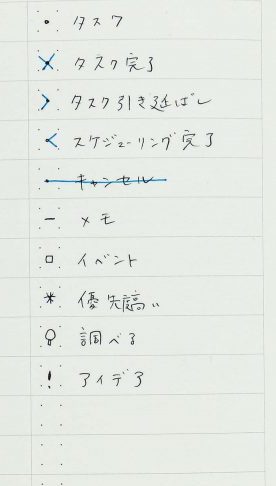 • タスク
× タスク完了
> タスク引き延ばし
< スケジューリング完了
• キャンセル
− メモ
□ イベント
* 優先高い
調べる
! アイデア